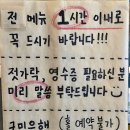 전 메뉴 1시간 이내로
꼭 드시기 바랍니다!!!
젓가락, 영수증 필요하신 분
미리 말씀 부탁드립니다
국민은행 (홀 예약불가)